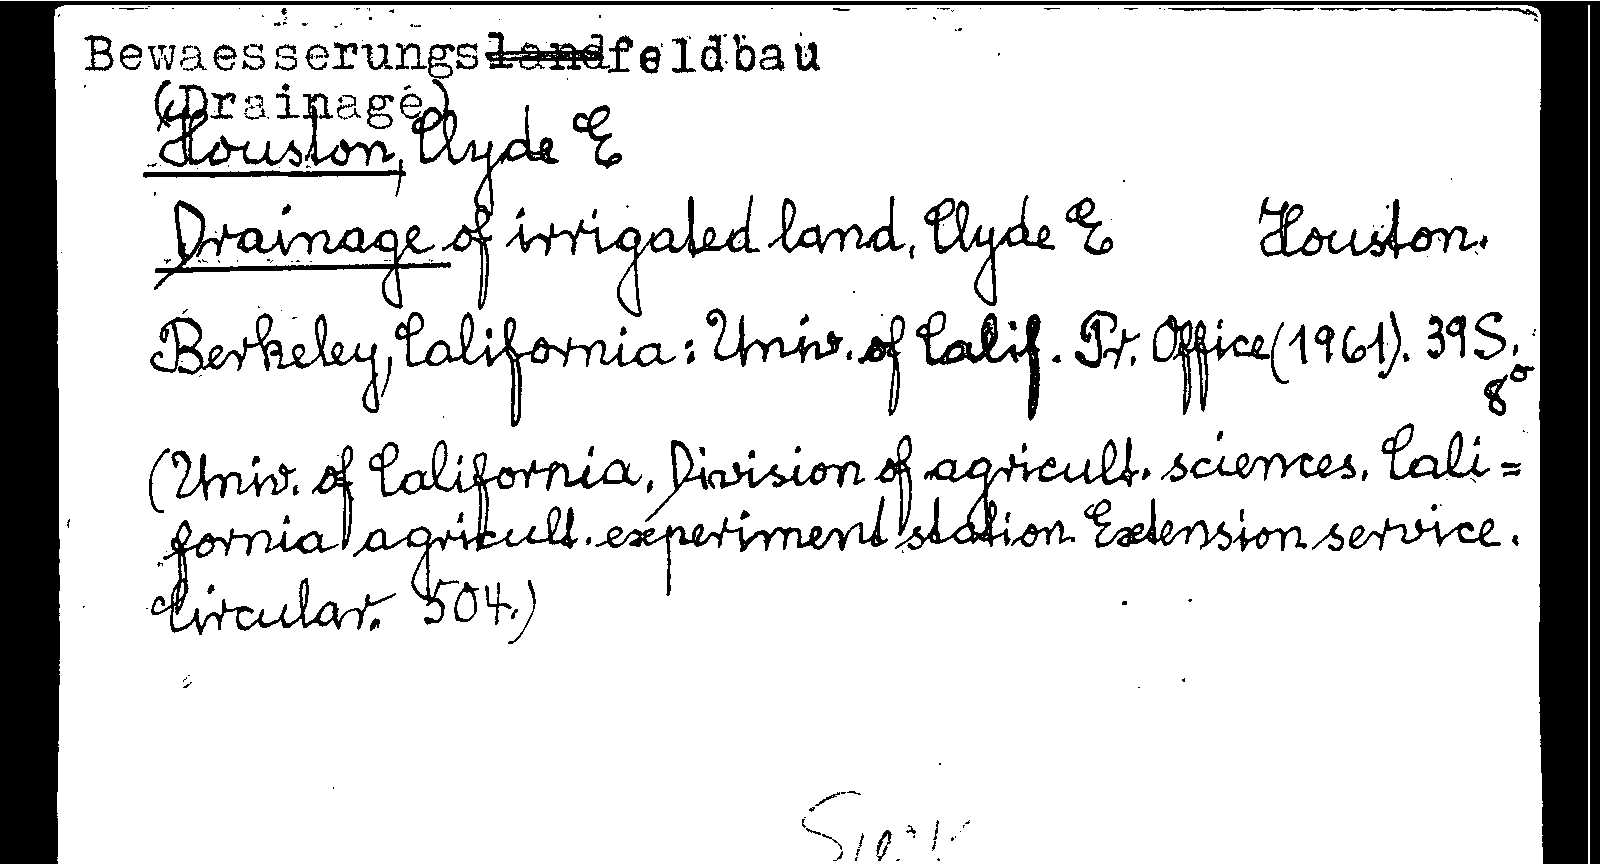 Bewaesserungslandfeldbau
(Drainage)
Houston, Clyde E
Drainage of irrigated land. Clyde E Houston.
Berkeley, California: Univ. of Calif. Pr. Office (1961). 39 S.
8°
(Univ. of California. Division of agricult. sciences. Cali=
fornia agricult. experiment station. Extension service.
Circular. 504.)